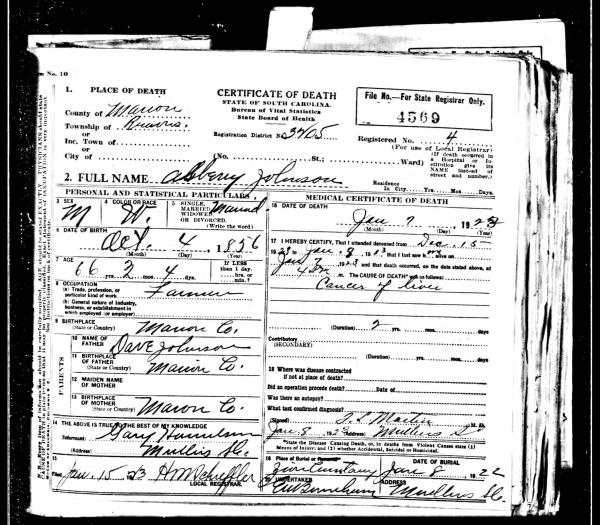 No. 10
1. PLACE OF DEATH
County of Marion
Township of
or
Inc. Town of
or
City of
CERTIFICATE OF DEATH
STATE OF SOUTH CAROLINA.
Bureau of Vital Statistics
State Board of Health
Registration District No. 3205
(No. St.; Ward)
File No.—For State Registrar Only.
4569
Registered No. 4
(For use of Local Registrar)
(If death occurred in
a Hospital or In-
stitution give its
NAME instead of
street and number.)
2. FULL NAME Johnson
Residence
In City Yrs. Mos. Days.
PERSONAL AND STATISTICAL PARTICULARS
3 SEX M
4 COLOR OR RACE W.
5 SINGLE, MARRIED, WIDOWED, OR DIVORCED. Married
(Write the word)
6 DATE OF BIRTH
Oct. 4, 1856
(Month) (Day) (Year)
7 AGE
66 yrs. 3 mos. 4 ds.
If LESS than 1 day, hrs. or min.
8 OCCUPATION
(a) Trade, profession, or
particular kind of work Farmer
(b) General nature of industry,
business, or establishment in
which employed (or employer)
9 BIRTHPLACE
(State or Country) Marion Co.
PARENTS
10 NAME OF
FATHER Dave Johnson
11 BIRTHPLACE
OF FATHER
(State or Country) Marion Co.
12 MAIDEN NAME
OF MOTHER
13 BIRTHPLACE
OF MOTHER
(State or Country) Marion Co.
14 THE ABOVE IS TRUE TO THE BEST OF MY KNOWLEDGE
(Informant) Gary
(Address) Mullins S.C.
15
Filed Jan. 15 23 H M
LOCAL REGISTRAR.
MEDICAL CERTIFICATE OF DEATH
16 DATE OF DEATH
Jan 7 1923
(Month) (Day) (Year)
17 I HEREBY CERTIFY, That I attended deceased from Dec. 15
Jan. 8 that I last saw alive on
Jan 7 1923 and that death occurred, on the date stated above, at
4 m. The CAUSE OF DEATH* was as follows:
Cancer of liver
(Duration) 2 yrs. mos. days
Contributory
(SECONDARY)
(Duration) yrs. mos. days
18 Where was disease contracted
if not at place of death?
Did an operation precede death? Date of
Was there an autopsy?
What test confirmed diagnosis?
(Signed) Martin M. D.
Jan. 8 (Address) Mullins S.C.
*State the Disease Causing Death, or, in deaths from Violent Causes state (1)
Means of Injury; and (2) whether Accidental, Suicidal or Homicidal.
19 Place of Burial or Removal DATE OF BURIAL
Zion Cemetary Jan 8, 1922
20 UNDERTAKER ADDRESS
Mullins S.C.